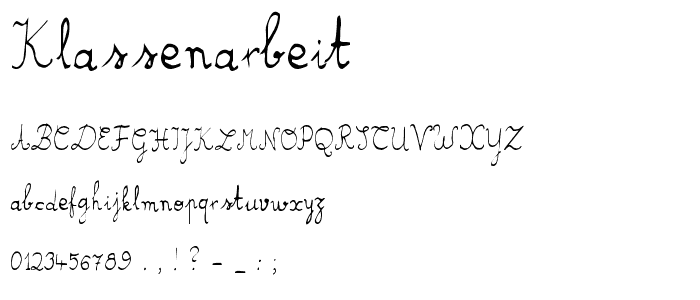 Klassenarbeit
ABCDEFGHIJKLMNOPQRSTUVWXYZ
abcdefghijklmnopqrstuvwxyz
0123456789 . , ! ? - _ : ;